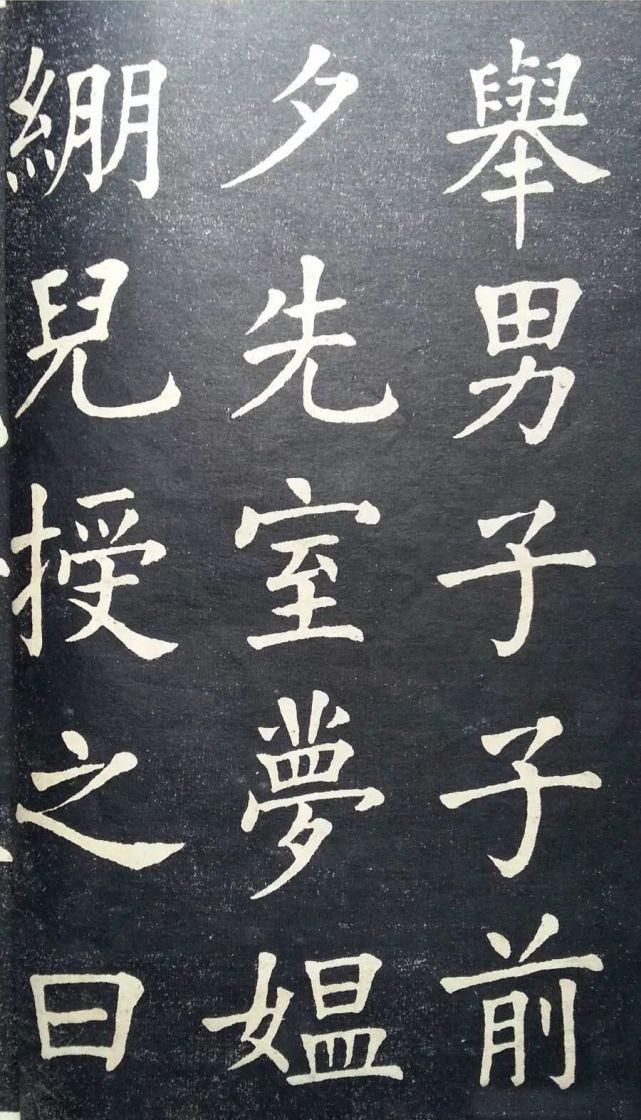 舉男子子前
夕先室夢媪
繃兒授之曰